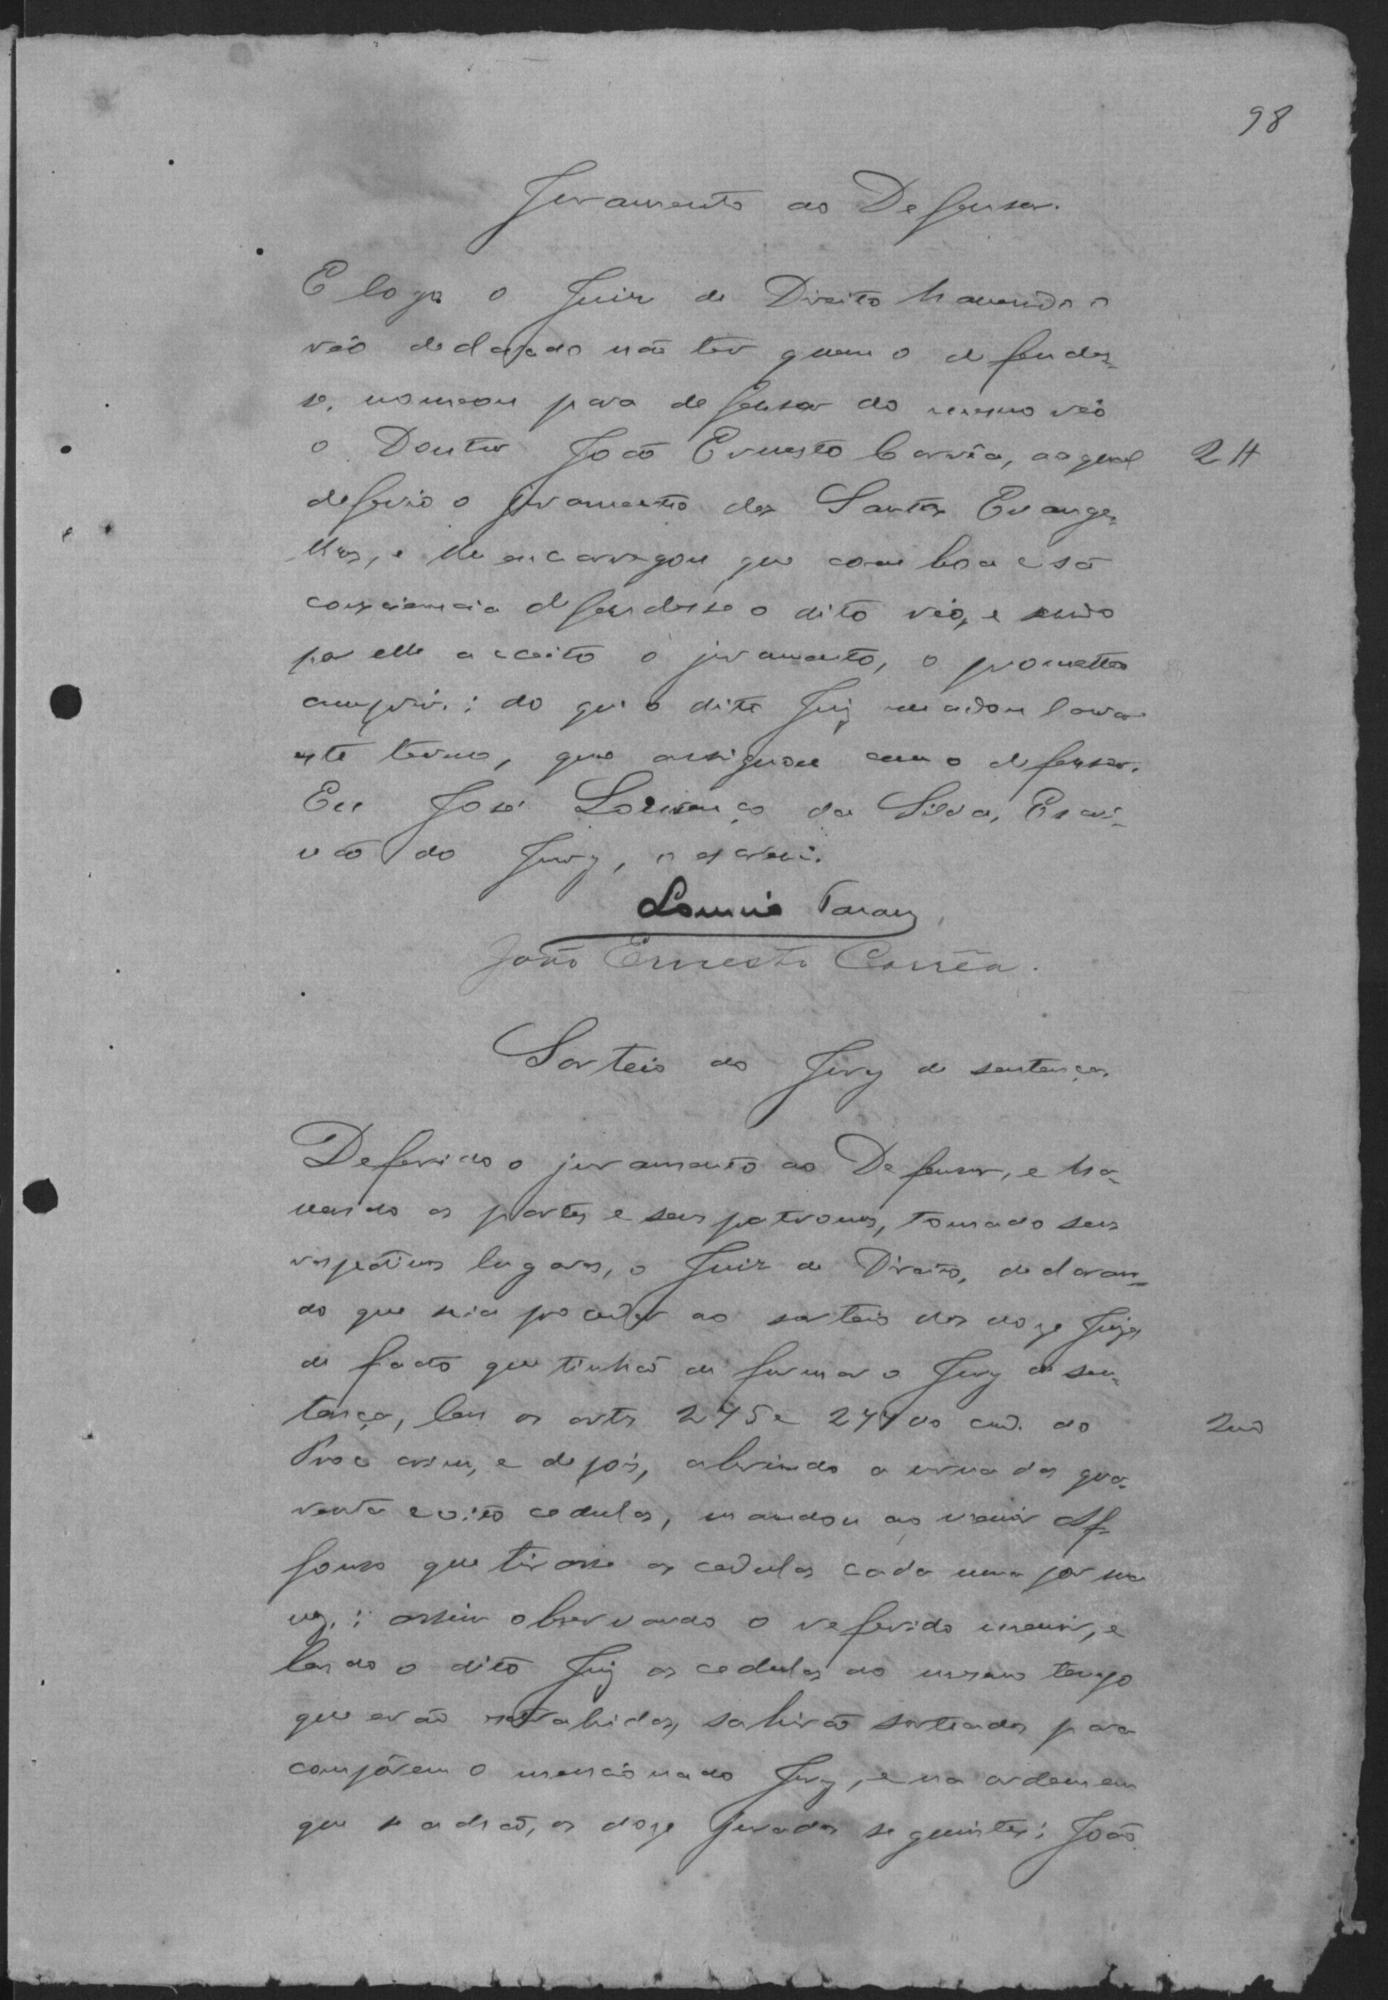 98
Juramento ao Defensor.
E logo o Juiz de Direito havendo o
réo declarado não ter quem o defendes-
se, nomeou para defensor do mesmo réo
o Doutor João Ernesto Corrêa, ao qual
2 H
deferio o juramento dos Santos Evange-
lhos, e lhe encarregou que com boa e sã
consciencia defendesse o dito réo, e sendo
por elle acceito o juramento, o prometteo
cumprir; do que o dito Juiz mandou lavrar
este termo, que assignou com o defensor.
Eu José Lourenço da Silva, Escri-
vão do Jury, o escrevi.
João Ernesto Corrêa.
Sorteio do Jury de sentença
Deferido o juramento ao Defensor, e ha-
vendo as partes e seus patronos, tomado seus
respectivos lugares, o Juiz de Direito, declaran-
do que hia proceder ao sorteio dos doze Juizes
de facto que tinhão de formar o Jury de sen-
tença, leu os arts 275 e 277 do cod. do
Proc crim, e depois, abrindo a urna das qua-
renta e oito cedulas, mandou ao menor Af-
fonso que tirasse as cedulas cada uma por sua
vez; assim observando o referido menor, e
lendo o dito Juiz as cedulas ao mesmo tempo
que erão extrahidas, sahirão sorteados para
compôrem o mencionado Jury, e na ordem em
que se achão, os doze Jurados seguintes: João